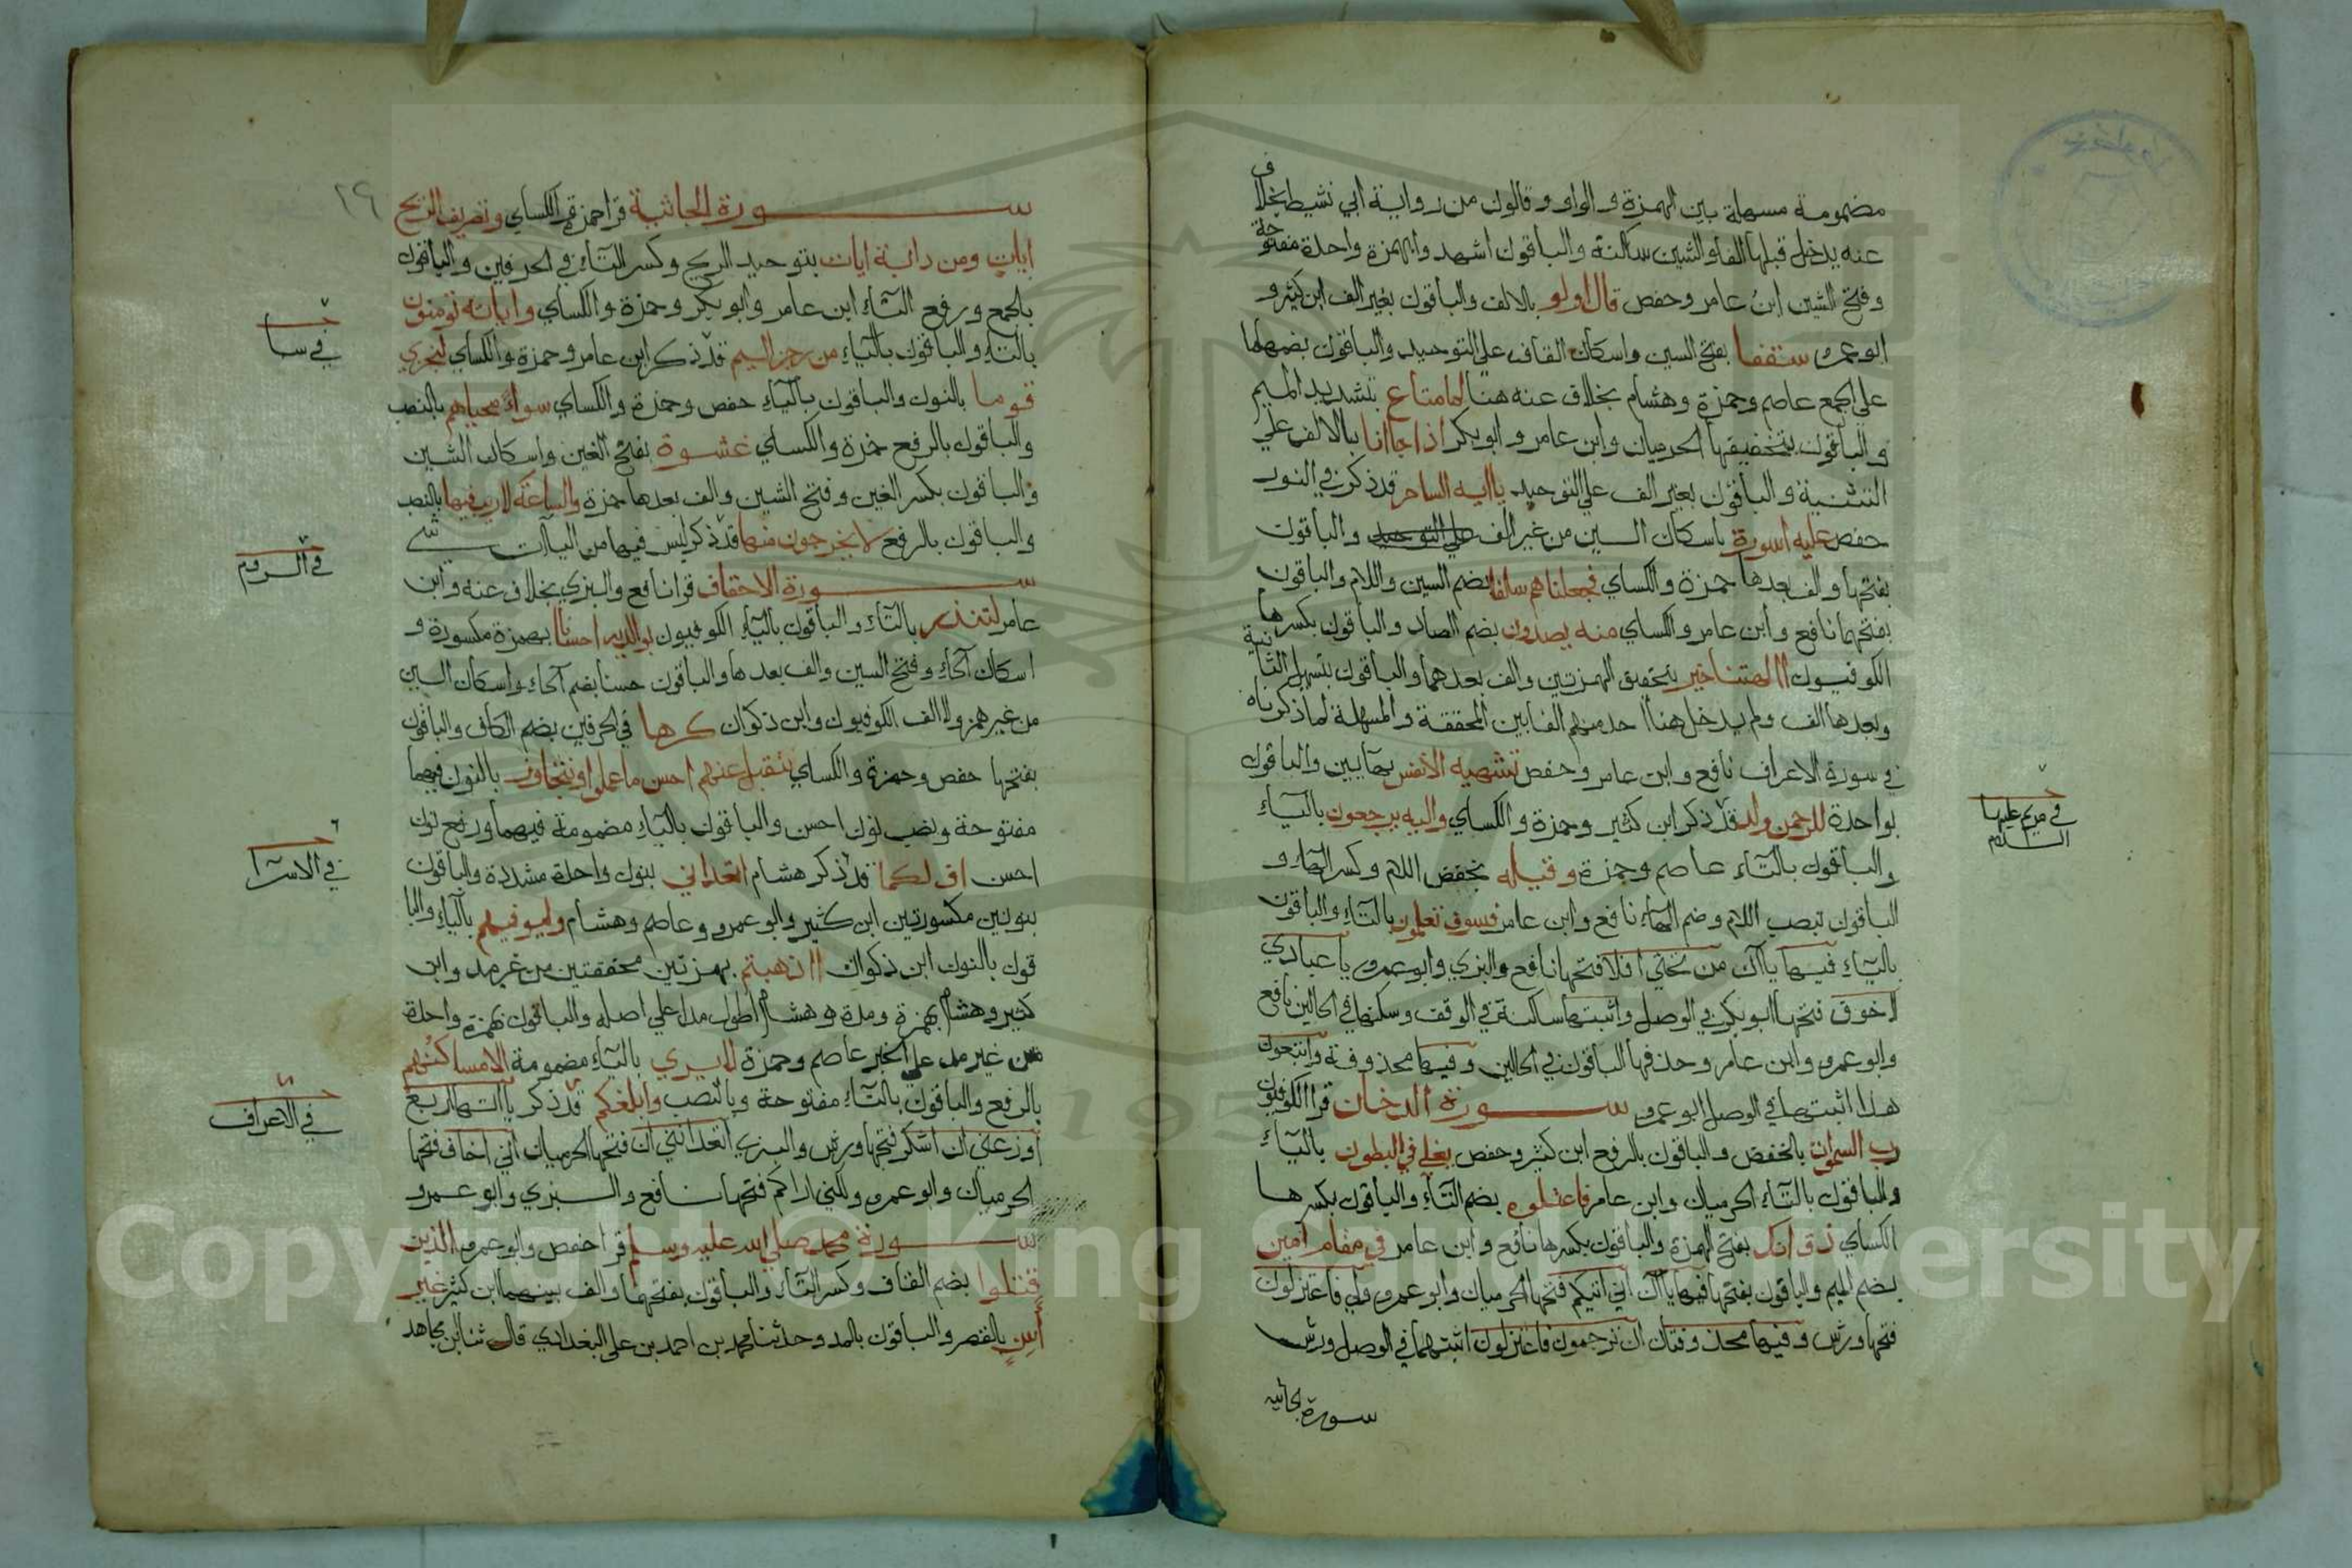 مضمومة مسهلة بين الهمزة والواو وقالون من رواية ابي نشيط بخلاف
عنه يدخل قبلها الفا والشين ساكنة والباقون اشهد وابهمزة واحدة مفتوحة
وفتح الشين ابن عامر وحفص قال اولو بالالف والباقون بغير الف ابن كثير و
ابو عمرو سقفا بفتح السين واسكان القاف علي التوحيد والباقون بضمهما
علي الجمع عاصم وحمزة وهشام بخلاف عنه هنا لما متاع بتشديد الميم
والباقون بتخفيفها الحرميان وابن عامر وابو بكر اذا جاانا بالالف علي
التثنية والباقون بغير الف علي التوحيد يا ايه الساحر قد ذكر في النور
حفص عليه اسورة باسكان السين من غير الف علي التوحيد والباقون
بفتحها والف بعدها حمزة والكساي فجعلناهم سلفا بضم السين واللام والباقون
بفتحهما نافع وابن عامر والكساي منه يصدون بضم الصاد والباقون بكسرها
الكوفيون االهتنا خير بتحقيق الهمزتين والف بعدهما والباقون بتسهيل الثانية
وبعدها الف ولم يدخل هنا احد منهم الفا بين المحققة والمسهلة لما ذكرناه
في سورة الاعراف نافع وابن عامر وحفص تشتهيه الانفس بهايين والباقون
بواحدة للرحمن ولد قد ذكر ابن كثير وحمزة والكساي واليه يرجعون بالياء
والباقون بالتاء عاصم وحمزة وقيله بخفض اللام وكسر الهاء و
الباقون بنصب اللام وضم الهاء نافع وابن عامر فسوف تعلمون بالتاء والباقون
بالياء فيها ياآن من تحتي افلا فتحها نافع والبزي وابو عمرو يا عبادي
لا خوف فتحها ابو بكر في الوصل واثبتها ساكنة في الوقف وسكنها في الحالين نافع
وابو عمرو وابن عامر وحذفها الباقون في الحالين وفيها محذوفة واتبعون
هذا اثبتها في الوصل ابو عمرو سورة الدخان قرا الكوفيون
رب السموات بالخفض والباقون بالرفع ابن كثير وحفص يغلي في البطون بالياء
والباقون بالتاء الحرميان وابن عامر فاعتلوه بضم التاء والباقون بكسرها
الكساي ذق انك بفتح الهمزة والباقون بكسرها نافع وابن عامر في مقام امين
بضم الميم والباقون بفتحها فيها ياآن اني اتيكم فتحها الحرميان وابو عمرو ولي فاعتزلون
فتحها ورش وفيها محذوفتان ان ترجمون فاعتزلون اثبتهما في الوصل ورش
سورة الجاثية
في مريم عليها
السلام
١٩
سورة الجاثية قرا حمزة والكساي وتصريف الريح
ايات ومن دابة ايات بتوحيد الريح وكسر التاء في الحرفين والباقون
بالجمع ورفع التاء ابن عامر وابو بكر وحمزة والكساي واياته تومنون
بالتاء والباقون بالياء من رجز اليم قد ذكر ابن عامر وحمزة والكساي لنجزي
قوما بالنون والباقون بالياء حفص وحمزة والكساي سواء محياهم بالنصب
والباقون بالرفع حمزة والكساي غشوة بفتح الغين واسكان الشين
والباقون بكسر الغين وفتح الشين والف بعدها حمزة والساعة لا ريب فيها بالنصب
والباقون بالرفع لا يخرجون منها قد ذكر ليس فيها من الياآت شي
سورة الاحقاف قرا نافع والبزي بخلاف عنه وابن
عامر لتنذر بالتاء والباقون بالياء الكوفيون بوالديه احسانا بهمزة مكسورة و
اسكان الحاء وفتح السين والف بعدها والباقون حسنا بضم الحاء واسكان السين
من غير همز ولا الف الكوفيون وابن ذكوان كرها في الحرفين بضم الكاف والباقون
بفتحها حفص وحمزة والكساي نتقبل عنهم احسن ما عملوا ونتجاوز بالنون فيهما
مفتوحة ونصب نون احسن والباقون بالياء مضمومة فيهما ورفع نون
احسن اف لكما قد ذكر هشام اتعداني بنون واحدة مشددة والباقون
بنونين مكسورتين ابن كثير وابو عمرو وعاصم وهشام وليوفيهم بالياء والبا
قون بالنون ابن ذكوان ااذهبتم بهمزتين محققتين من غير مد وابن
كثير وهشام بهمزة ومدة وهشام اطول مدا علي اصله والباقون بهمزة واحدة
من غير مد علي الخبر عاصم وحمزة لا يري بالياء مضمومة الا مساكنهم
بالرفع والباقون بالتاء مفتوحة وبالنصب وابلغكم قد ذكر ياآتها اربع
اوزعني ان اشكر فتحها ورش والبزي اتعدانني ان فتحها الحرميان اني اخاف فتحها
الحرميان وابو عمرو ولكني اراكم فتحها نافع والبزي وابو عمرو
سورة محمد صلي الله عليه وسلم قرا حفص وابو عمرو والذين
قتلوا بضم القاف وكسر التاء والباقون بفتحهما والف بينهما ابن كثير غير
اسن بالقصر والباقون بالمد وحدثنا محمد بن احمد بن علي البغدادي قال ثنا ابن مجاهد
في سبا
في الروم
في الاسرا
في الاعراف
Copyright © King Saud University
195